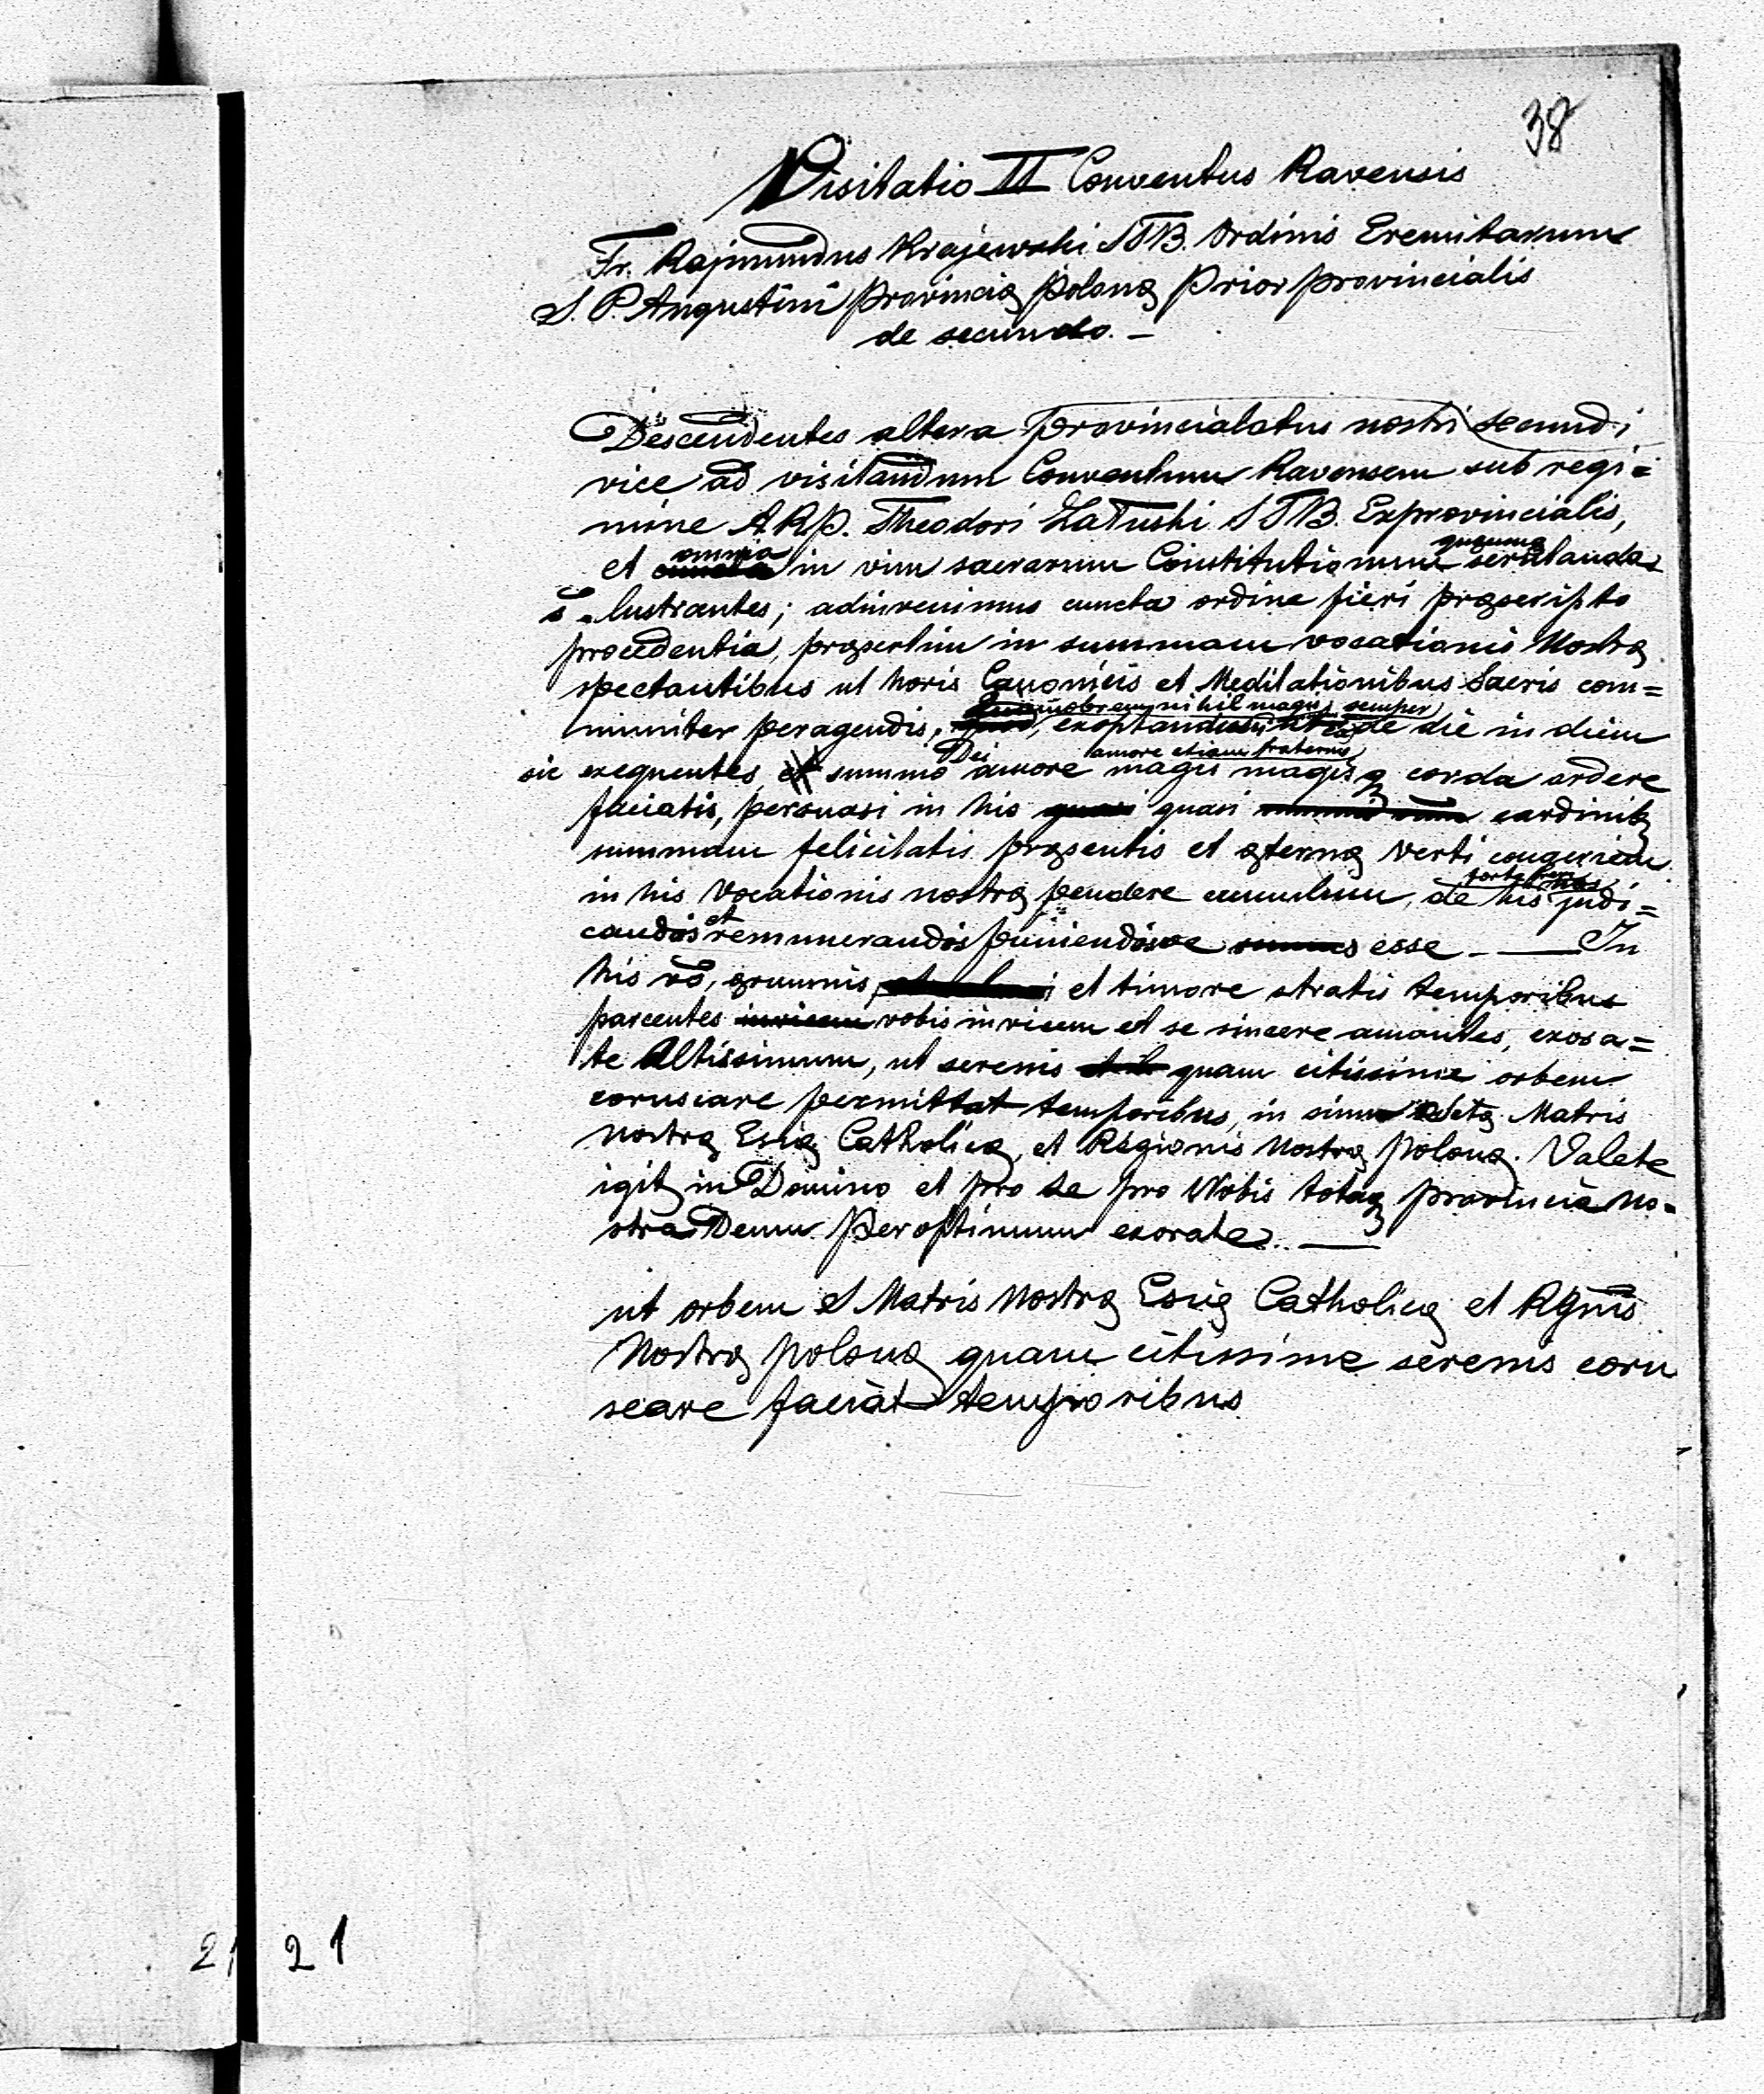 38
Visitatio II Conventus Ravensis
Fr. Rajmundus Krajewski STB. Ordinis Eremitarum
S. P. Augustini provinciæ polonæ prior provincialis
de secundo. –
Descendentes altera provincialatus nostri secundi
vice ad visitandum Conventum Ravensem sub regi=
mine ARP. Theodori Łatuski STB. Exprovincialis,
omnia quæque
et cuncta in vim sacrarum Constitutionum scrutanda
lustrantes; adinvenimus cuncta ordine fieri præscripto
procedentia, præsertim in summam vocationis Nostræ
spectantibus ut horis Canonicis et Meditationibus Sacris com=
Quamobrem nihil magis semper
muniter peragendis, exoptandum de die in diem
Dei amore etiam fraterno
sic exequentes, et summo amore magis magisq corda ardere
faciatis, persuasi in his quasi quasi cardinibq
summam felicitatis præsentis et æternæ verti congeriem
in his vocationis nostræ pendere cumulum, de his judi=
et
candos remunerandos puniendosve sumus esse. — In
his vo, ærumnis, et timore stratis temporibus
parcentes invicem vobis invicem et se sincere amantes, exora=
te Altissimum, ut serenis quam citissime orbem
coruscare permittat temporibus, in sinu Sctæ Matris
nostræ Eccæ Catholicæ, et Regionis Nostræ polonæ. Valete
igitq in Domino et pro se pro Nobis totaq provincia no=
stra Deum peroptimum exorate. —
ut orbem S Matris Nostræ Eccæ Catholicæ et Rgnis
Nostræ polonæ quam citissime serenis coru
scare faciat temporibus
21 21